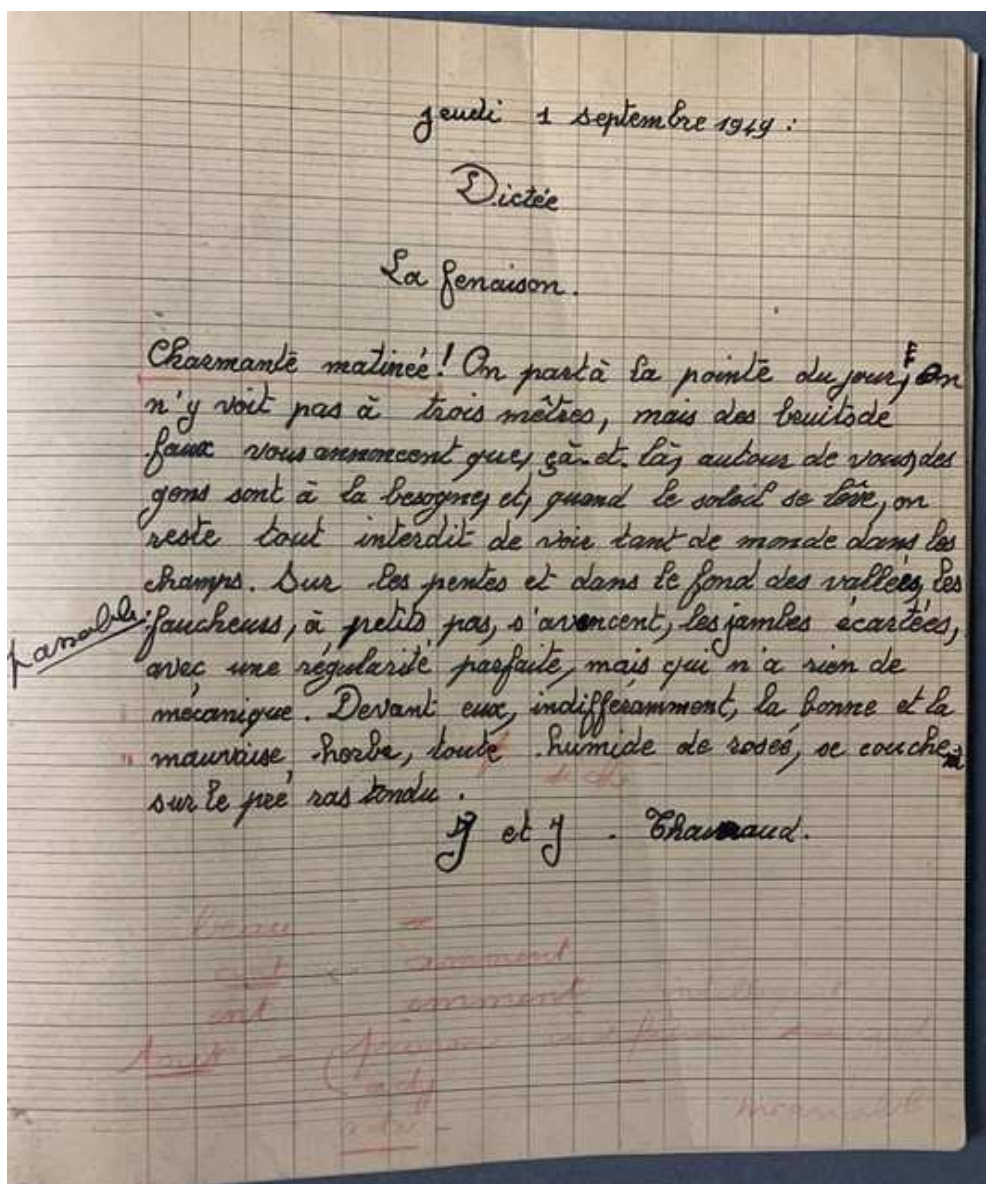 jeudi 1 septembre 1949 :
Dictée
La fenaison.
Charmante matinée ! On part à la pointe du jour, on
n'y voit pas à trois mètres, mais des bruits de
faux vous annoncent que, çà et là, autour de vous, des
gens sont à la besogne, et, quand le soleil se lève, on
reste tout interdit de voir tant de monde dans les
champs. Sur les pentes et dans le fond des vallées, les
faucheurs, à petits pas, s'avancent, les jambes écartées,
avec une régularité parfaite, mais qui n'a rien de
mécanique. Devant eux, indifféramment, la bonne et la
mauvaise herbe, toute humide de rosée, se couchent
sur le pré ras tondu.
J et J. Tharaud.
beau
ant amment
ent emment
tout
adj
adv